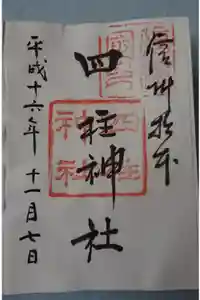 信州松本
四柱神社
四柱
神社
平成十六年 十一月七日